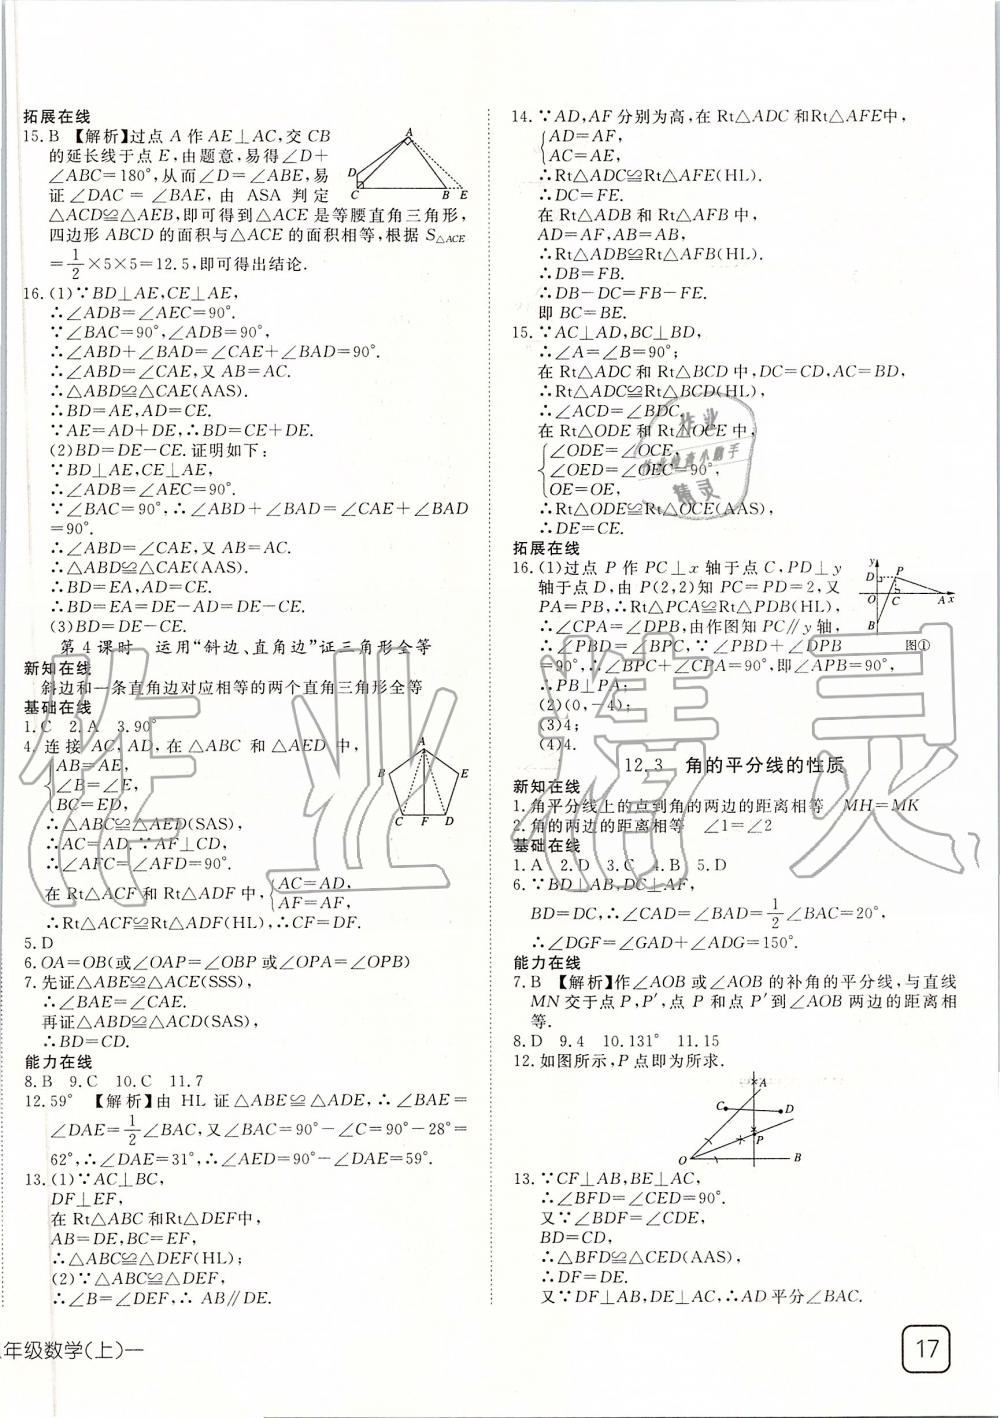 拓展在线
15.B 【解析】过点 A 作 AE⊥AC,交 CB
的延长线于点 E,由题意,易得∠D+
∠ABC=180°,从而∠D=∠ABE,易
证∠DAC=∠BAE,由 ASA 判定
△ACD≌△AEB,即可得到△ACE 是等腰直角三角形,
四边形 ABCD 的面积与△ACE 的面积相等,根据 S△ACE
=1/2×5×5=12.5,即可得出结论.
A
D
C
B
E
16.(1)∵BD⊥AE,CE⊥AE,
∴∠ADB=∠AEC=90°.
∵∠BAC=90°,∠ADB=90°,
∴∠ABD+∠BAD=∠CAE+∠BAD=90°.
∴∠ABD=∠CAE,又 AB=AC.
∴△ABD≌△CAE(AAS).
∴BD=AE,AD=CE.
∵AE=AD+DE,∴BD=CE+DE.
(2)BD=DE-CE.证明如下:
∵BD⊥AE,CE⊥AE,
∴∠ADB=∠AEC=90°.
∵∠BAC=90°,∴∠ABD+∠BAD=∠CAE+∠BAD
=90°.
∴∠ABD=∠CAE,又 AB=AC.
∴△ABD≌△CAE(AAS).
∴BD=EA,AD=CE.
∴BD=EA=DE-AD=DE-CE.
(3)BD=DE-CE.
第 4 课时 运用“斜边、直角边”证三角形全等
新知在线
斜边和一条直角边对应相等的两个直角三角形全等
基础在线
1.C 2.A 3.90°
4.连接 AC,AD,在△ABC 和△AED 中,
AB=AE,
∠B=∠E,
BC=ED,
∴△ABC≌△AED(SAS),
∴AC=AD,∵AF⊥CD,
∴∠AFC=∠AFD=90°.
在 Rt△ACF 和 Rt△ADF 中,{AC=AD,
AF=AF,
∴Rt△ACF≌Rt△ADF(HL),∴CF=DF.
A
B
E
C F D
5.D
6.OA=OB(或∠OAP=∠OBP 或∠OPA=∠OPB)
7.先证△ABE≌△ACE(SSS),
∴∠BAE=∠CAE.
再证△ABD≌△ACD(SAS),
∴BD=CD.
能力在线
8.B 9.C 10.C 11.7
12.59° 【解析】由 HL 证△ABE≌△ADE,∴∠BAE=
∠DAE=1/2∠BAC,又∠BAC=90°-∠C=90°-28°=
62°,∴∠DAE=31°,∴∠AED=90°-∠DAE=59°.
13.(1)∵AC⊥BC,
DF⊥EF,
在 Rt△ABC 和Rt△DEF中,
AB=DE,BC=EF,
∴△ABC≌△DEF(HL);
(2)∵△ABC≌△DEF,
∴∠B=∠DEF,∴AB∥DE.
14.∵AD,AF 分别为高,在 Rt△ADC 和Rt△AFE中,
AD=AF,
AC=AE,
∴Rt△ADC≌Rt△AFE(HL).
∴DC=FE.
在 Rt△ADB 和 Rt△AFB 中,
AD=AF,AB=AB,
∴Rt△ADB≌Rt△AFB(HL).
∴DB=FB.
∴DB-DC=FB-FE.
即 BC=BE.
15.∵AC⊥AD,BC⊥BD,
∴∠A=∠B=90°;
在 Rt△ADC 和 Rt△BCD 中,DC=CD,AC=BD,
∴Rt△ADC≌Rt△BCD(HL),
∴∠ACD=∠BDC,
在 Rt△ODE 和 Rt△OCE 中,
∠ODE=∠OCE,
∠OED=∠OEC=90°,
OE=OE,
∴Rt△ODE≌Rt△OCE(AAS),
∴DE=CE.
拓展在线
16.(1)过点 P 作 PC⊥x 轴于点 C,PD⊥y
轴于点 D,由 P(2,2)知 PC=PD=2,又
PA=PB,∴Rt△PCA≌Rt△PDB(HL),
∴∠CPA=∠DPB,由作图知 PC∥y 轴,
∴∠PBD=∠BPC.∵∠PBD+∠DPB
=90°,∴∠BPC+∠CPA=90°,即∠APB=90°,
∴PB⊥PA;
(2)(0,-4);
(3)4;
(4)4.
y
D
P
O
C
A x
B
图①
12.3 角的平分线的性质
新知在线
1.角平分线上的点到角的两边的距离相等 MH=MK
2.角的两边的距离相等 ∠1=∠2
基础在线
1.A 2.D 3.C 4.B 5.D
6.∵BD⊥AB,DC⊥AF,
BD=DC,∴∠CAD=∠BAD=1/2∠BAC=20°,
∴∠DGF=∠GAD+∠ADG=150°.
能力在线
7.B 【解析】作∠AOB 或∠AOB 的补角的平分线,与直线
MN 交于点 P,P′,点 P 和点 P′到∠AOB 两边的距离相
等.
8.D 9.4 10.131° 11.15
12.如图所示,P 点即为所求.
A
C
D
P
O
B
13.∵CF⊥AB,BE⊥AC,
∴∠BFD=∠CED=90°.
又∵∠BDF=∠CDE,
BD=CD,
∴△BFD≌△CED(AAS),
∴DF=DE.
又∵DF⊥AB,DE⊥AC,∴AD 平分∠BAC.
年级数学(上)一
17
作业精灵
作业
作业检查小助手
精灵